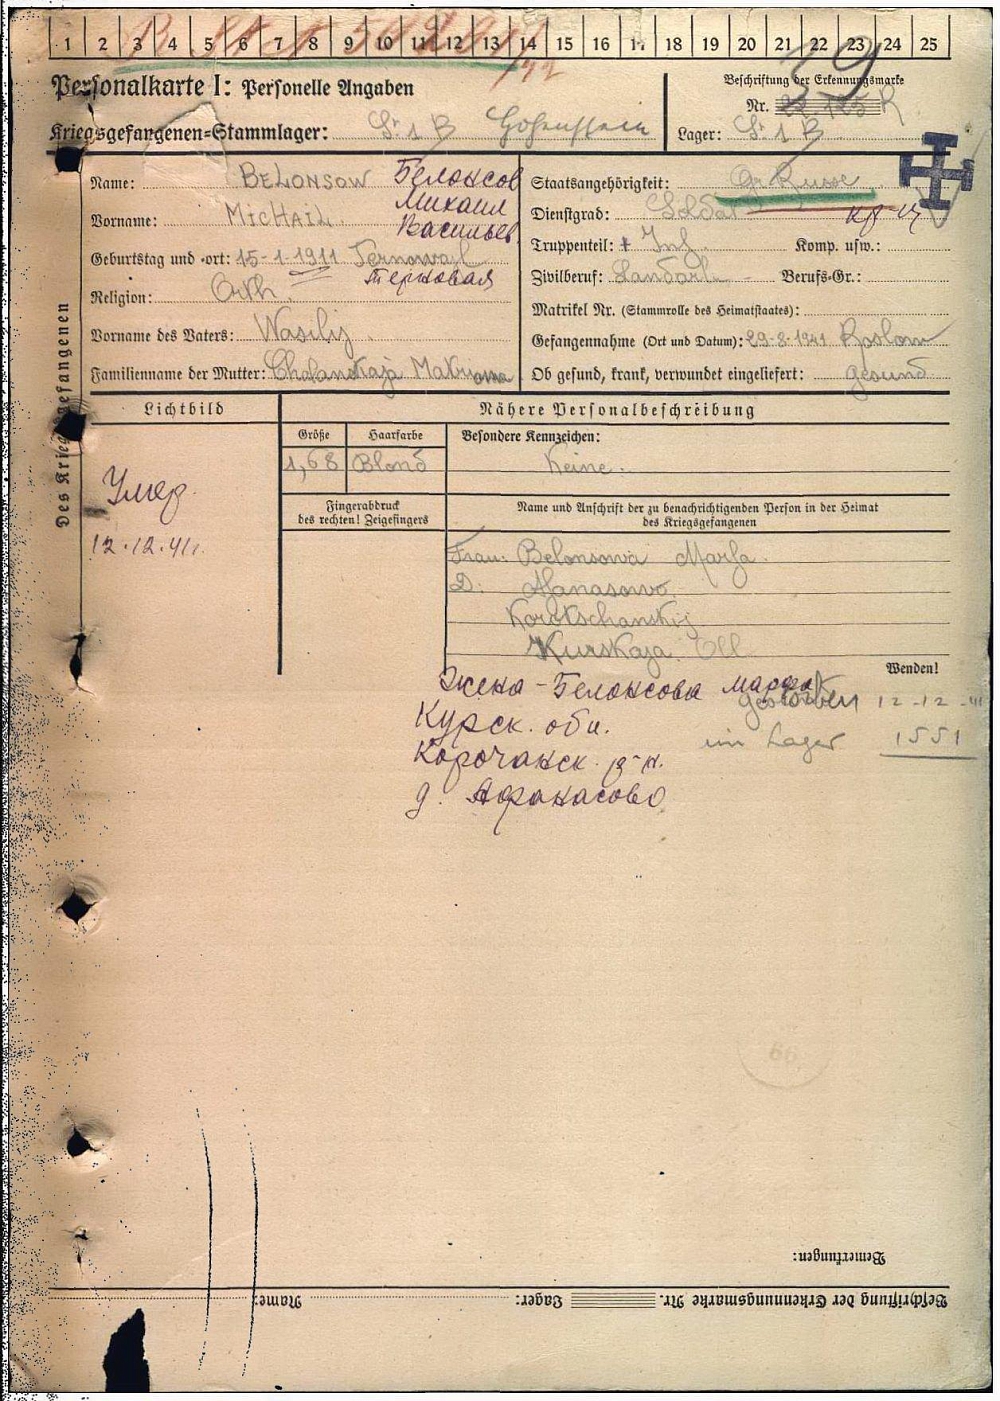 1 2 3 4 5 6 7 8 9 10 11 12 13 14 15 16 17 18 19 20 21 22 23 24 25
Personalkarte I: Personelle Angaben
Beschriftung der Erkennungsmarke
Nr. 22125 R
Kriegsgefangenen-Stammlager: St. 1 B Hohenstein
Lager: St. 1 B
Des Kriegsgefangenen
Name: BELONSOW Белонсов
Михаил
Vorname: MICHAIL
Васильев.
Geburtstag und -ort: 15-1-1911 Ternowaja
Терновая
Religion: Orth.
Vorname des Vaters: Wasilij
Familienname der Mutter:
Staatsangehörigkeit: Gr. Russe
Dienstgrad: Soldat
Truppenteil: Inf. Komp. usw.:
Zivilberuf: Landarb. Berufs-Gr.:
Matrikel Nr. (Stammrolle des Heimatstaates):
Gefangennahme (Ort und Datum): 29-8-1941
Ob gesund, krank, verwundet eingeliefert: gesund
Lichtbild
Nähere Personalbeschreibung
Größe Haarfarbe Besondere Kennzeichen:
1,68 Blond Keine.
Fingerabdruck
des rechten! Zeigefingers
Name und Anschrift der zu benachrichtigenden Person in der Heimat
des Kriegsgefangenen
Умер
12.12.41г.
Frau: Belonsowa Marfa
D. Afanasowo
Korotschanskij
Kurskaja Obl
Wenden!
Жена - Белонсова Марфа
gestorben 12-12-41
Курск. обл.
im Lager 1551
Корочанск. р-н.
д. Афанасово
Bemerkungen:
Beschriftung der Erkennungsmarke Nr. Lager: Name: